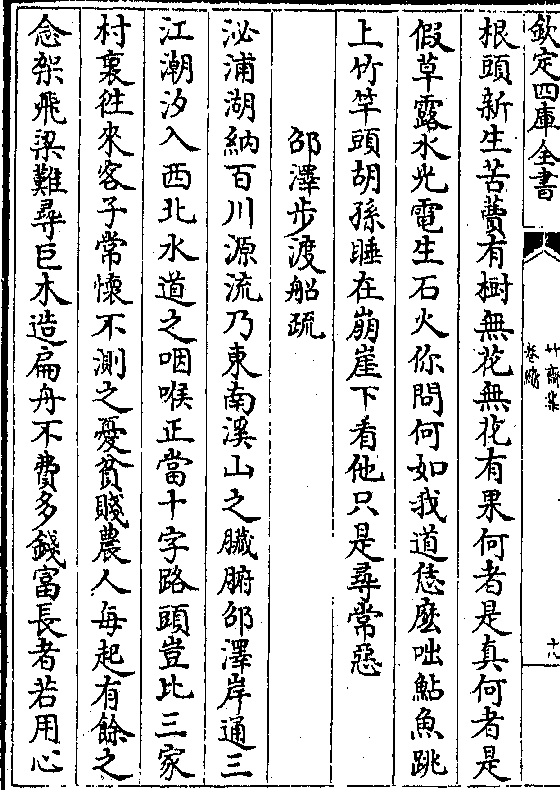 欽定四庫全書
竹齋集
卷續
根頭新生苦蔓有樹無花無花有果何者是真何者是
假草露水光電生石火你問何如我道恁麽咄鮎魚跳
上竹竿頭胡孫睡在崩崖下看他只是尋常惡
邵澤步渡船疏
泌浦湖納百川源流乃東南溪山之臟腑邵澤岸通三
江潮汐入西北水道之咽喉正當十字路頭豈比三家
村裏徃來客子常懷不測之憂貧賤農人每起有餘之
念架飛梁難尋巨木造扁舟不費多錢富長者若用心